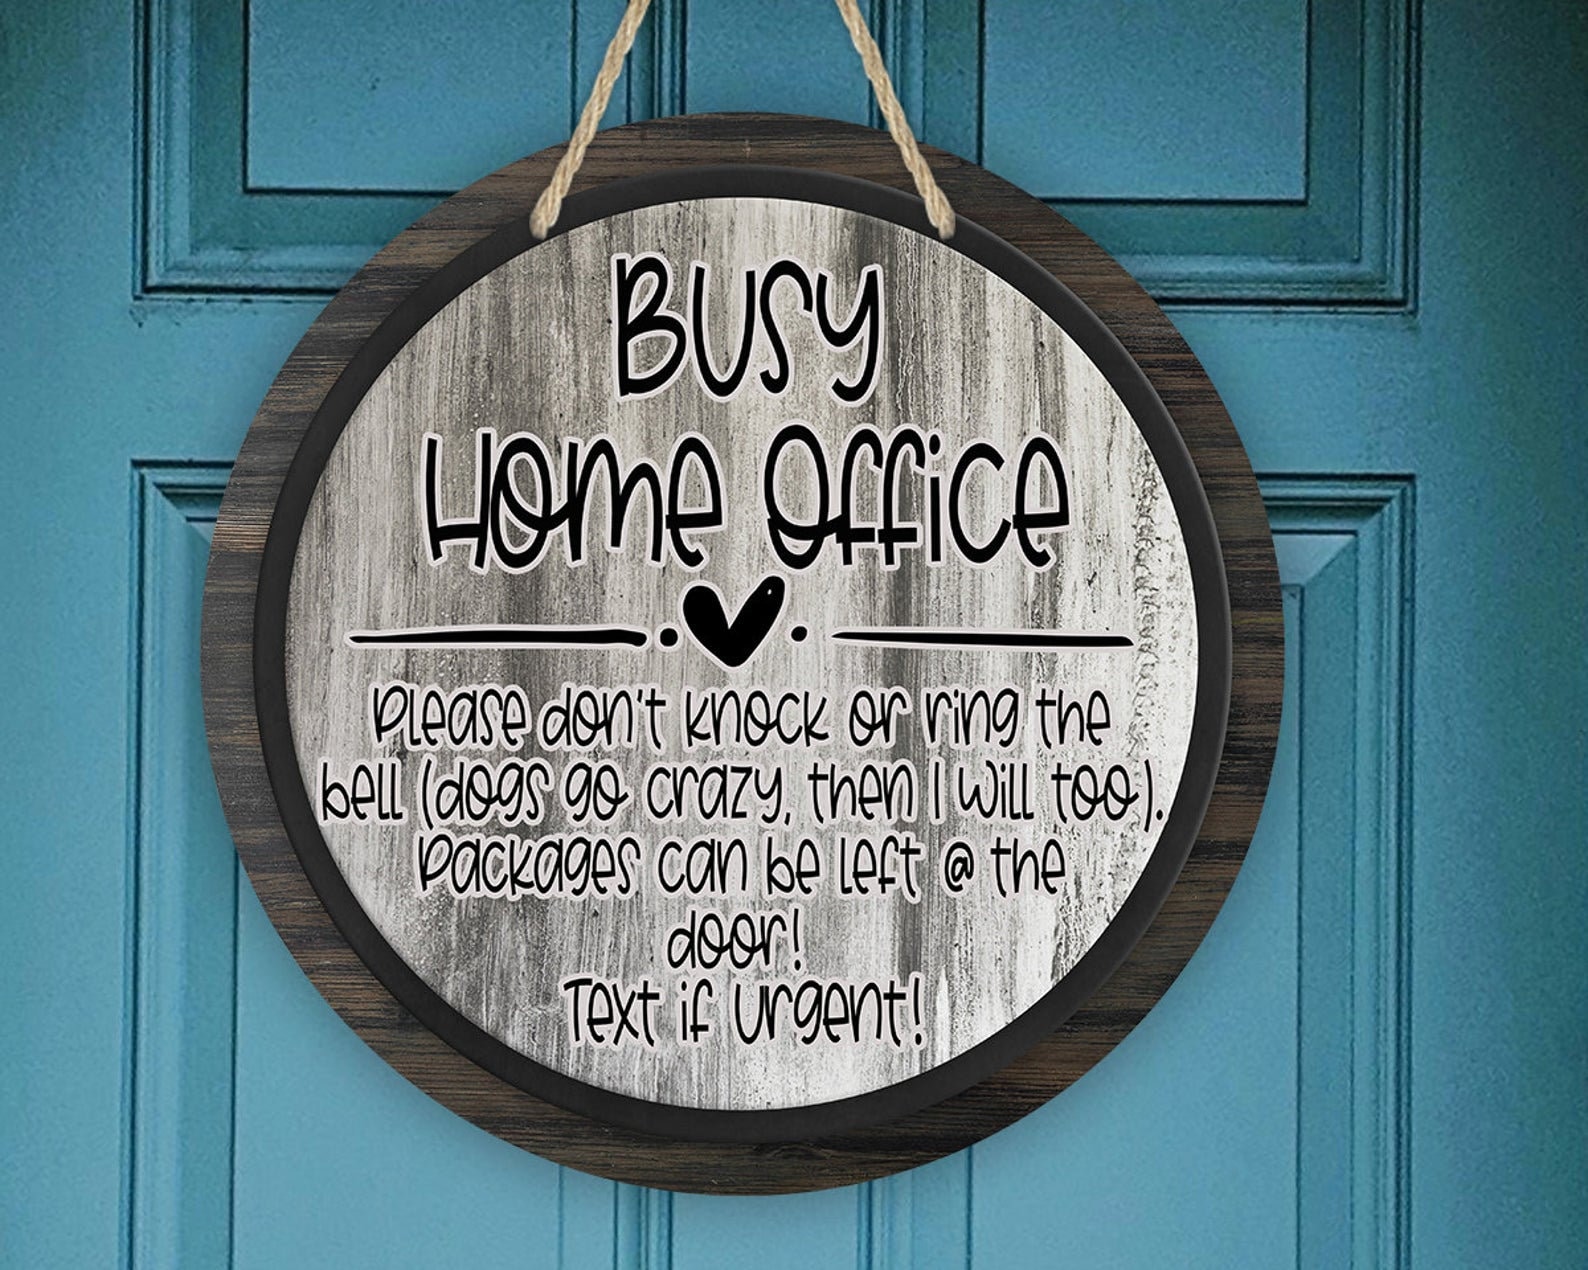 Busy
Home Office
Please don't knock or ring the
bell (dogs go crazy, then I will too).
Packages can be left @ the
door!
Text if urgent!